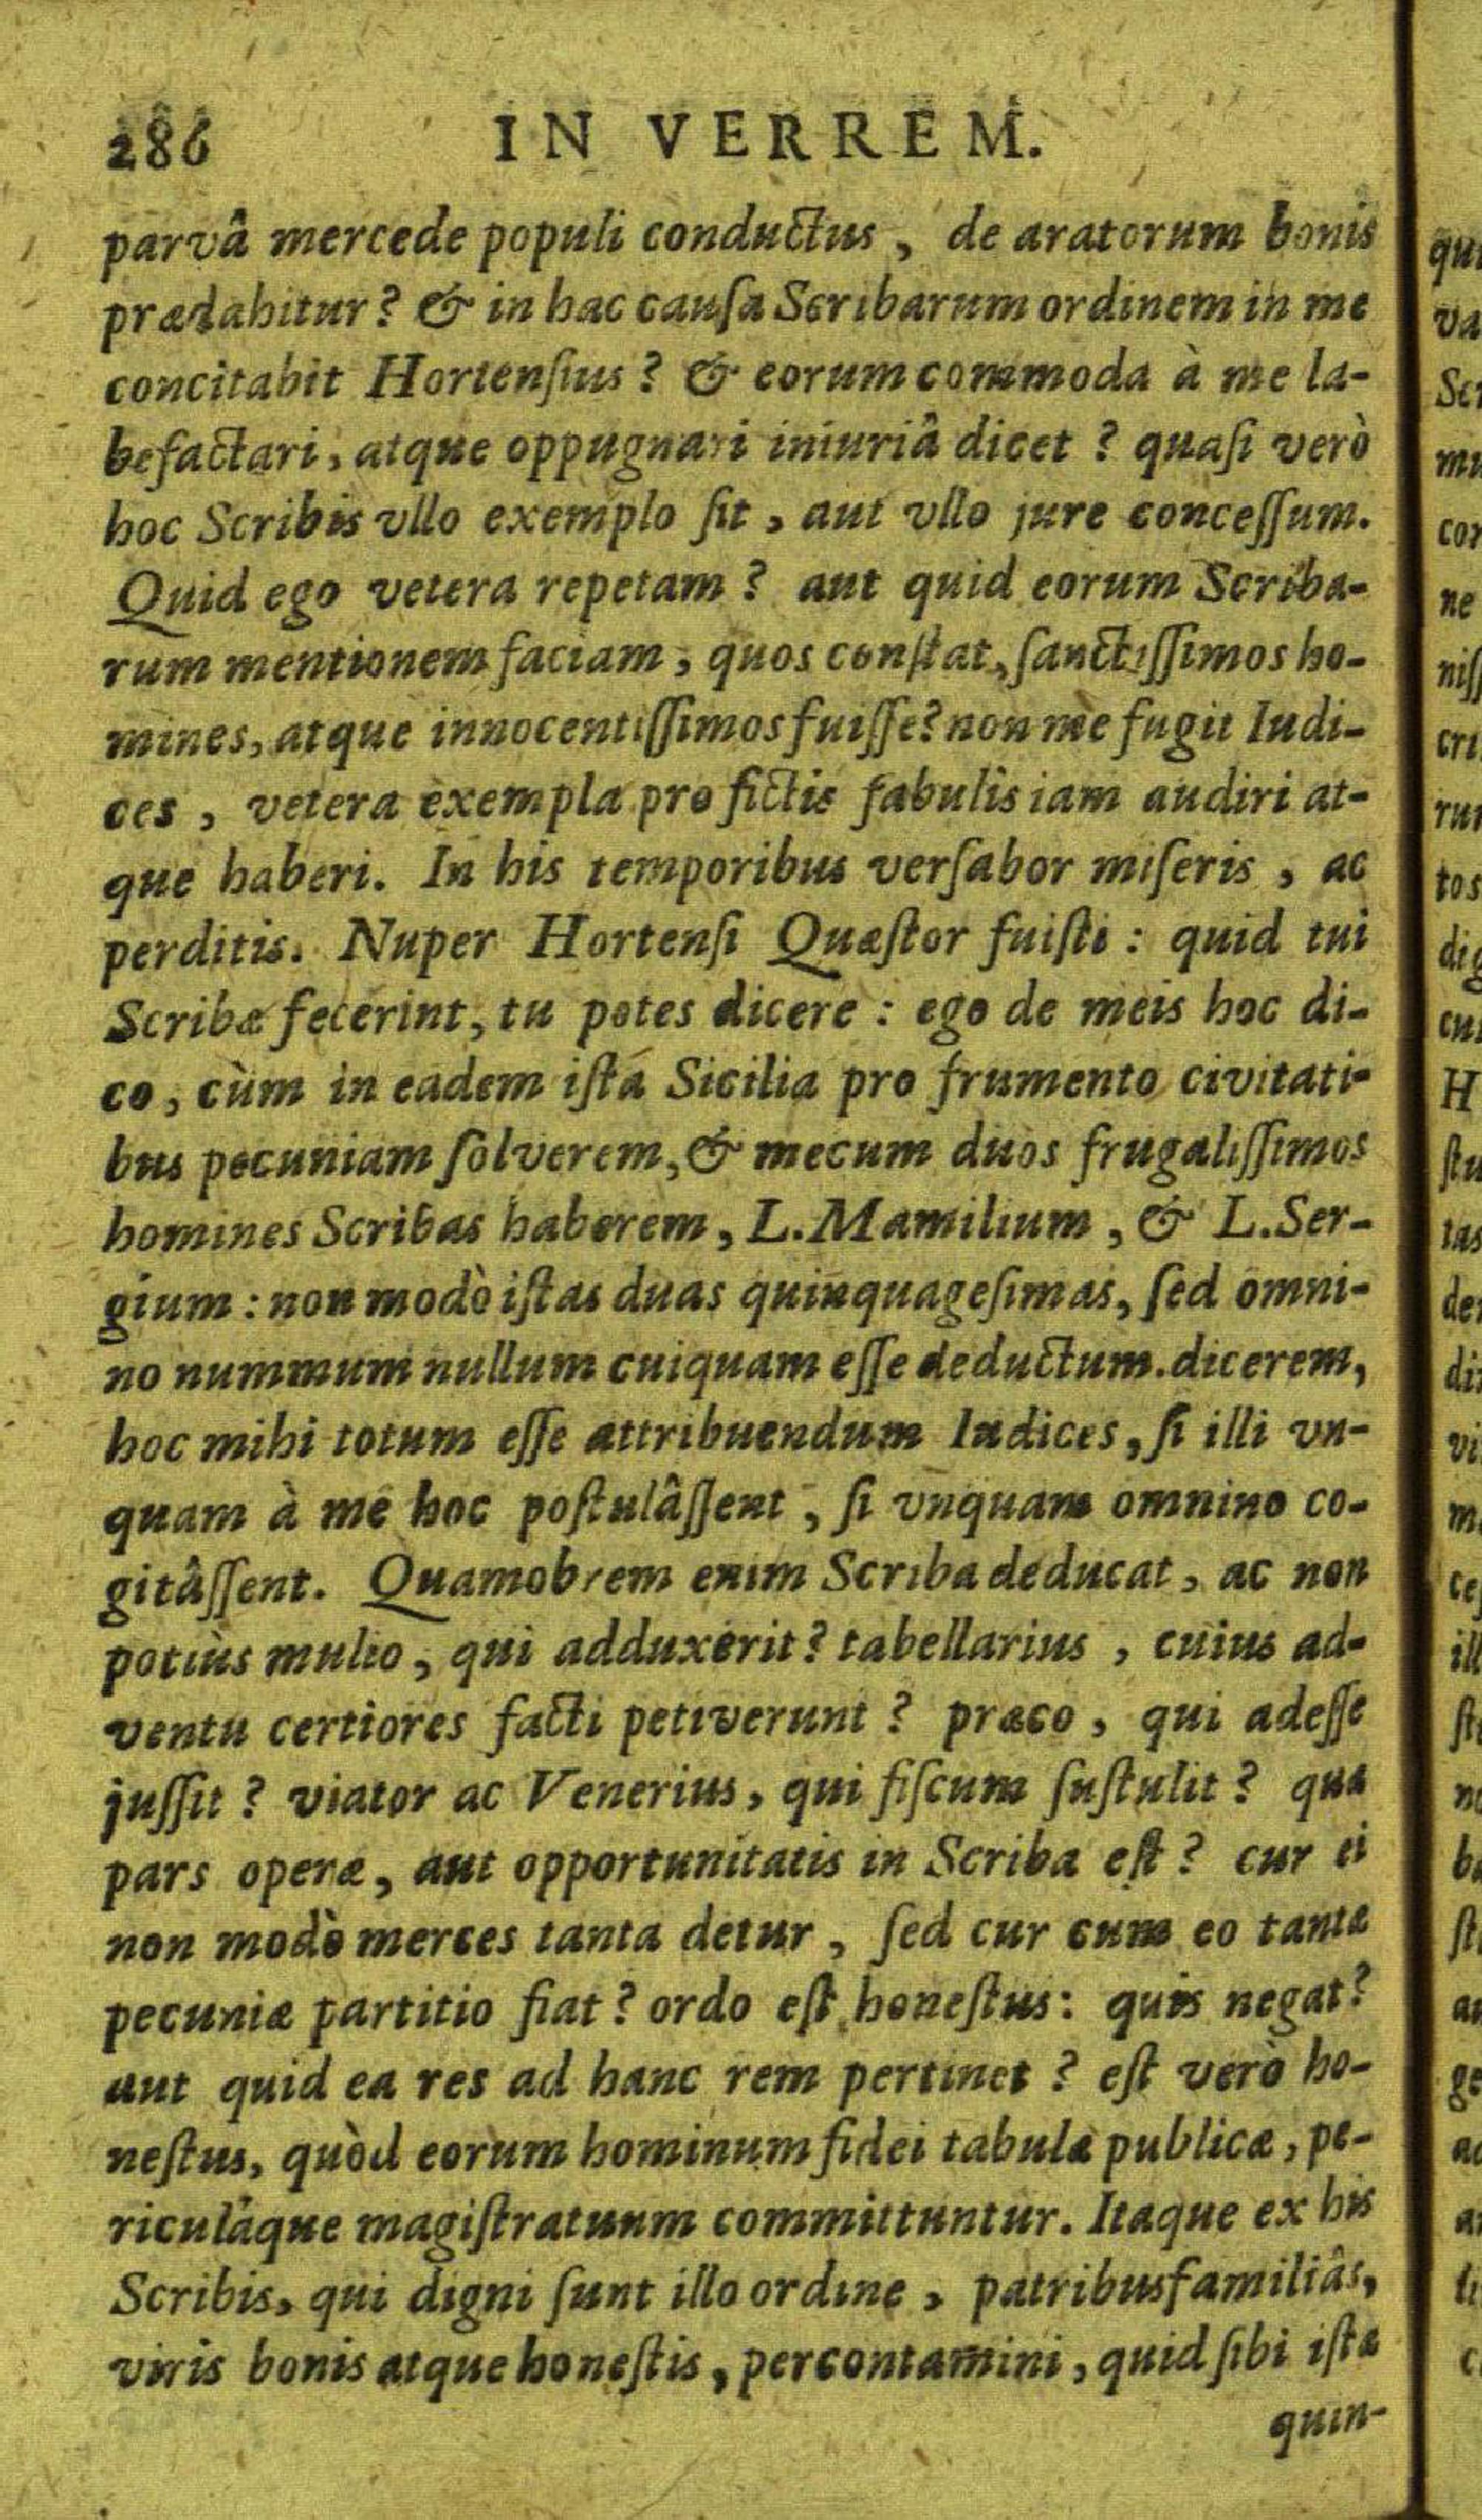 286 IN VERREM.
parvâ mercede populi conductus, de aratorum bonis
prædabitur? & in hac cauſa Scribarum ordinem in me
concitabit Hortenſius? & eorum commoda à me la-
befactari, atque oppugnari iniuriâ dicet? quaſi verò
hoc Scribis vllo exemplo ſit, aut vllo jure conceſſum.
Quid ego vetera repetam? aut quid eorum Scriba-
rum mentionem faciam, quos conſtat, ſanctiſſimos ho-
mines, atque innocentiſſimos fuiſſe? non me fugit Iudi-
ces, vetera exempla pro fictis fabulis iam audiri at-
que haberi. In his temporibus verſabor miſeris, ac
perditis. Nuper Hortenſi Quæſtor fuiſti: quid tui
Scribæ fecerint, tu potes dicere: ego de meis hoc di-
co, cùm in eadem iſta Sicilia pro frumento civitati-
bus pecuniam ſolverem, & mecum duos frugaliſſimos
homines Scribas haberem, L. Mamilium, & L. Ser-
gium: non modò iſtas duas quinquageſimas, ſed omni-
no nummum nullum cuiquam eſſe deductum. dicerem,
hoc mihi totum eſſe attribuendum Iudices, ſi illi vn-
quam à me hoc poſtulâſſent, ſi vnquam omnino co-
gitâſſent. Quamobrem enim Scriba deducat, ac non
potiùs mulio, qui adduxerit? tabellarius, cuius ad-
ventu certiores facti petiverunt? præco, qui adeſſe
juſſit? viator ac Venerius, qui fiſcum ſuſtulit? qua
pars operæ, aut opportunitatis in Scriba eſt? cur ei
non modò merces tanta detur, ſed cur cum eo tantæ
pecuniæ partitio fiat? ordo eſt honeſtus: quis negat?
aut quid ea res ad hanc rem pertinet? eſt verò ho-
neſtus, quòd eorum hominum fidei tabulæ publicæ, pe-
riculáque magiſtratuum committuntur. Itaque ex his
Scribis, qui digni ſunt illo ordine, patribusfamiliâs,
viris bonis atque honeſtis, percontamini, quid ſibi iſtæ
quin-
qui
va
Scr
mu
cor
ne
niſſ
cri
rur
tos
dig
cui
H
ſtu
tas
de
di
vi
m
ce
ill
ſt
no
ba
ſt
ge